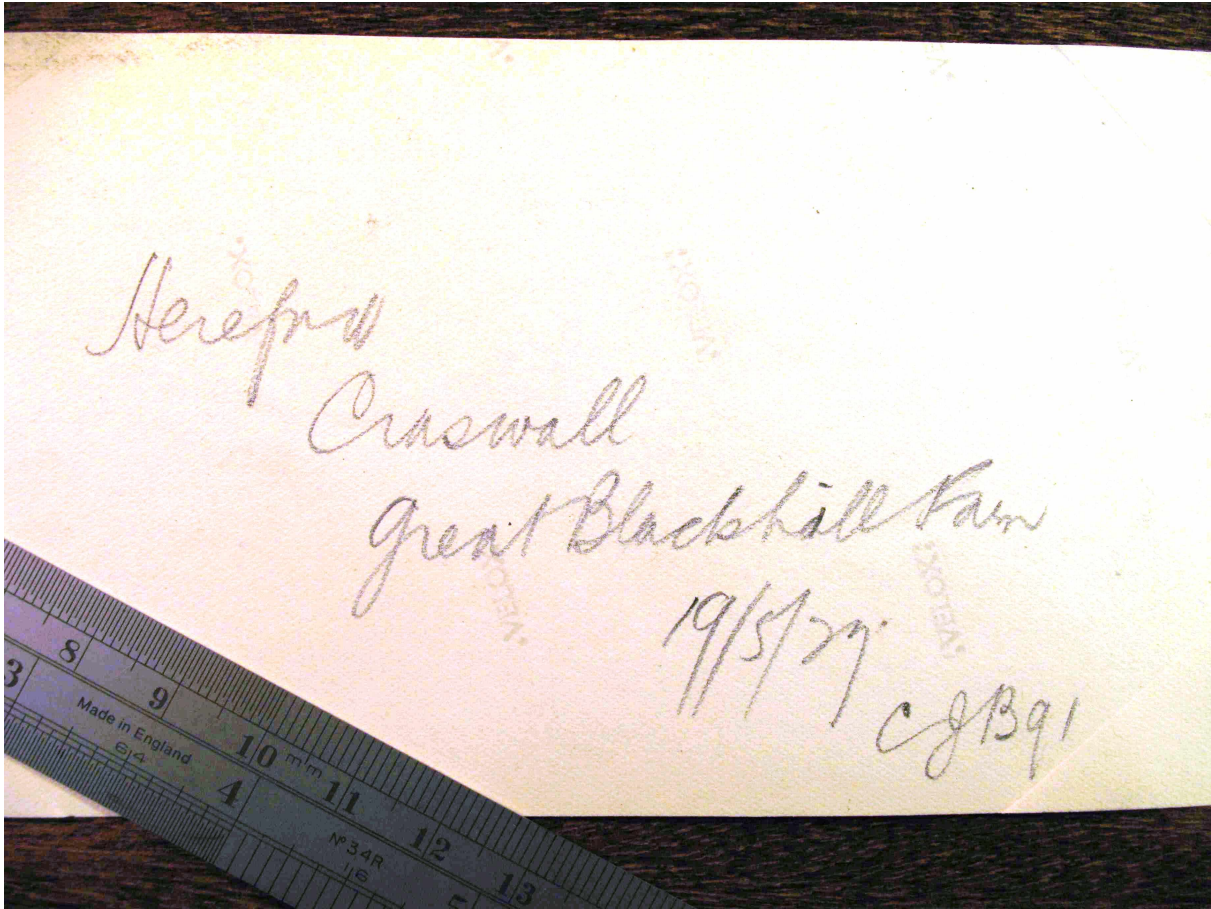 Hereford
Craswall
Great Blackhill Farm
19/5/27
CJB91
VELOX
VELOX
VELOX
VELOX
8
9
10 mm
11
12
13
Made in England
64
3
4
5
Nº 34R
16